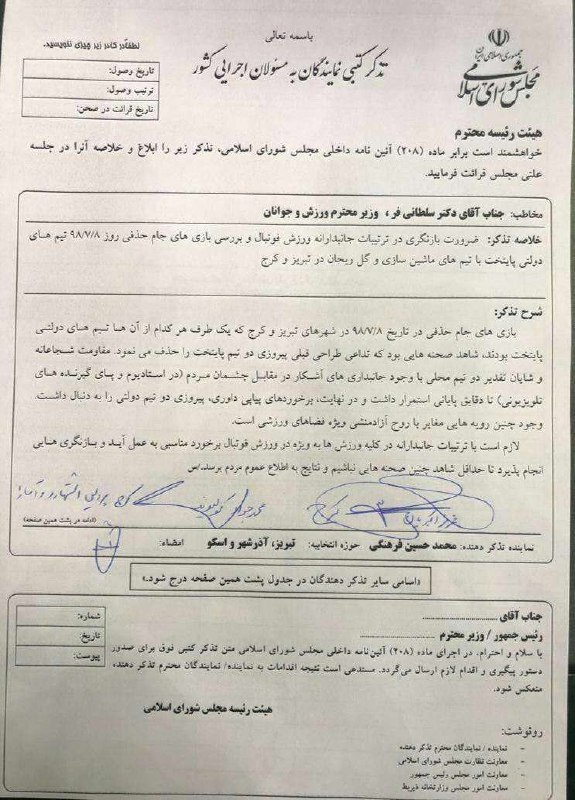 باسمه تعالی
جمهوری اسلامی ایران
مجلس شورای اسلامی
تذکر کتبی نمایندگان به مسئولان اجرایی کشور
لطفاً در کادر زیر چیزی ننویسید.
تاریخ وصول:
ترتیب وصول:
تاریخ قرائت در صحن:
هیئت رئیسه محترم
خواهشمند است برابر ماده (۲۰۸) آئین نامه داخلی مجلس شورای اسلامی، تذکر زیر را ابلاغ و خلاصه آنرا در جلسه
علنی مجلس قرائت فرمایید.
مخاطب: جناب آقای دکتر سلطانی فر ، وزیر محترم ورزش و جوانان
خلاصه تذکر: ضرورت بازنگری در ترتیبات جانبدارانه ورزش فوتبال و بررسی بازی های جام حذفی روز ۹۸/۷/۸ تیم های
دولتی پایتخت با تیم های ماشین سازی و گل ریحان در تبریز و کرج
شرح تذکر:
بازی های جام حذفی در تاریخ ۹۸/۷/۸ در شهرهای تبریز و کرج که یک طرف هر کدام از آن ها تیم های دولتی
پایتخت بودند، شاهد صحنه هایی بود که تداعی طراحی قبلی پیروزی دو تیم پایتخت را حذف می نمود. مقاومت شجاعانه
و شایان تقدیر دو تیم محلی با وجود جانبداری های آشکار در مقابل چشمان مردم (در استادیوم و پای گیرنده های
تلویزیونی) تا دقایق پایانی استمرار داشت و در نهایت، برخوردهای پیاپی داوری، پیروزی دو تیم دولتی را به دنبال داشت.
وجود چنین رویه هایی مغایر با روح آزادمنشی ویژه فضاهای ورزشی است.
لازم است با ترتیبات جانبدارانه در کلیه ورزش ها به ویژه در ورزش فوتبال برخورد مناسبی به عمل آید و بازنگری هایی
انجام پذیرد تا حداقل شاهد چنین صحنه هایی نباشیم و نتایج به اطلاع عموم مردم برسد./س
کرج
محمدجواد کولیوند کرج
(ادامه در پشت همین صفحه)
نماینده تذکر دهنده: محمد حسین فرهنگی حوزه انتخابیه: تبریز، آذرشهر و اسکو امضاء:
«اسامی سایر تذکر دهندگان در جدول پشت همین صفحه درج شود.»
جناب آقای ..............................
رئیس جمهور / وزیر محترم ..............................
با سلام و احترام، در اجرای ماده (۲۰۸) آئین‌نامه داخلی مجلس شورای اسلامی متن تذکر کتبی فوق برای صدور
دستور پیگیری و اقدام لازم ارسال می‌گردد. مستدعی است نتیجه اقدامات به نماینده/ نمایندگان محترم تذکر دهنده،
منعکس شود.
شماره:
تاریخ:
پیوست:
هیئت رئیسه مجلس شورای اسلامی
رونوشت:
- نماینده / نمایندگان محترم تذکر دهنده
- معاونت نظارت مجلس شورای اسلامی
- معاونت امور مجلس رئیس جمهور
- معاونت امور مجلس وزارتخانه ذیربط